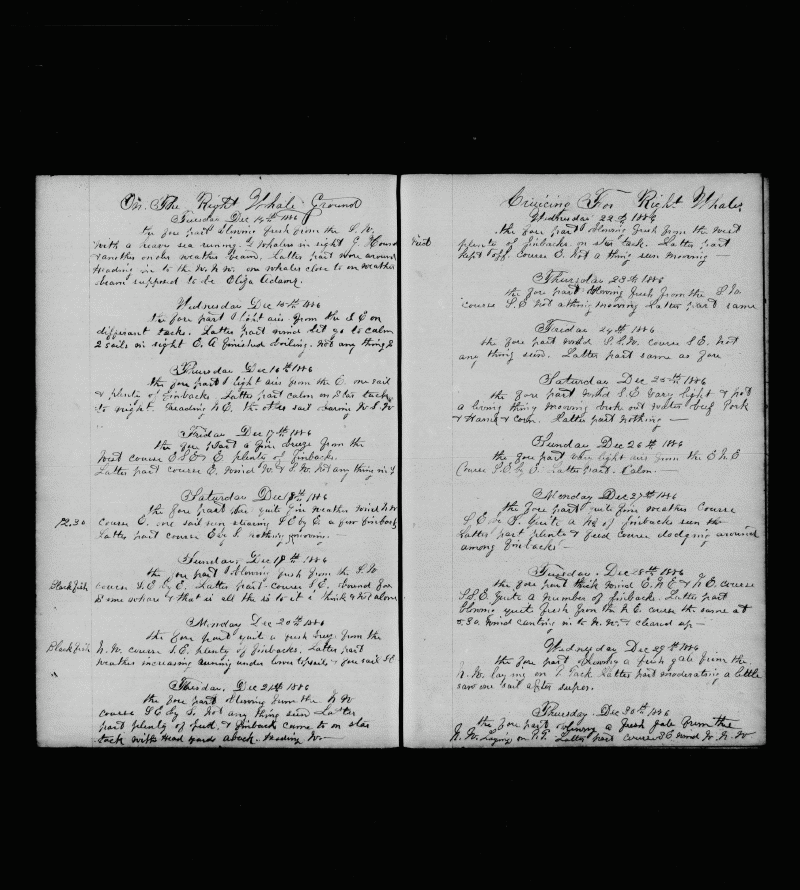 On The Right Whale Ground
Tuesday Dec 14th 1886
the fore part blowing fresh from the S.W.
with a heavy sea runing. 2 Whalers in sight
& another on our weather beam. Latter part wore around
heading in to the W.N.W. one whaler close to on weather
beam supposed to be Eliza Adams.
Wednesday Dec 15th 1886
the fore part light airs from the S E on
different tacks. Latter part wind calm
2 sails in sight E. A finished boiling. Not any thing
Thursday Dec 16th 1886
the fore part light airs from the E. one sail
& plenty of finbacks. Latter part calm on Star tack
in sight. heading N.E. the other sail W S W
Friday Dec 17th 1886
the fore part a fine breeze from the
West course E S E & E plenty of finbacks.
Latter part course E. wind W. & S.W. Not any thing in
Saturday Dec 18th 1886
the fore part quite fine weather wind
12.30 course E. one sail seen stearing S E by E. a few finbacks
Latter part course E by S nothing mooving
Sunday, Dec 19th 1886
the fore part blowing fresh from the S.W
Blackfish course S.E. by E. Latter part course S E. bound for
some where & that is all there is to it I think & not alone
Monday Dec 20th 1886
the fore part quite a fresh breeze from the
Blackfish N.W. course S.E. plenty of finbacks. Latter part
weather increasing runing under lower topsail & fore sail S E
Tuesday, Dec 21st 1886
the fore part blowing from the N W
course S E by S. Not any thing seen Latter
part plenty of feed, & finback came to on star
tack with Head yards aback. Heading W
Cruicing For Right Whales
Wednesday 22th 1886
the fore part blowing fresh from the West
plenty of finbacks on star tack. Latter part
kept off. Course E. Not a thing seen mooving
Thursday 23th 1886
the fore part blowing fresh from the S W
course S.E. Not a thing mooving Latter part same
Friday 24th 1886
the fore part wind S.S.W. course S.E. Not
any thing seen. Latter part same as fore
Saturday Dec 25th 1886
the fore part wind S.E. Very light & not
a living thing mooving broke out water beef Pork
& Hams & corn. Latter part nothing
Sunday Dec 26th 1886
the fore part very light airs from the E N E
Course S.E. by E. Latter part. Calm.
Monday Dec 27th 1886
the fore part quite fine weather course
S.E. by S. Quite a No of finbacks seen the
Latter part plenty of feed course dodging around
among finbacks
Tuesday. Dec 28th 1886
the fore part thick wind E.N.E & N E. course
S.S.E. Quite a number of finbacks. Latter part
blowing quite fresh from the N.E. course the same at
5.30 wind canting in to N.W. & cleared up
Wednesday Dec 29th 1886
the fore part blowing a fresh gale from the
N.W. lay ing on P. Tack Latter part moderating a little
saw one sail after supper.
Thursday. Dec 30th 1886
the fore part blowing a fresh gale from the
N.W. Laying on P.T. Latter part course S E wind W.N.W